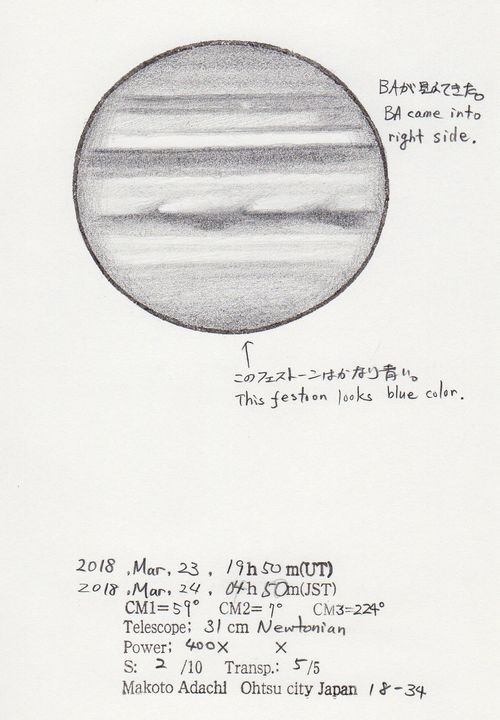 BAが見えてきた。
BA came into
right side.
↑
このフェストーンはかなり青い。
This festoon looks blue color.
2018 ,Mar, 23 , 19h 50 m(UT)
2018 ,Mar, 24 , 04h 50m(JST)
CM1=59° CM2= 7° CM3=224°
Telescope; 31 cm Newtonian
Power; 400× ×
S: 2 /10 Transp.: 5/5
Makoto Adachi Ohtsu city Japan 18-34